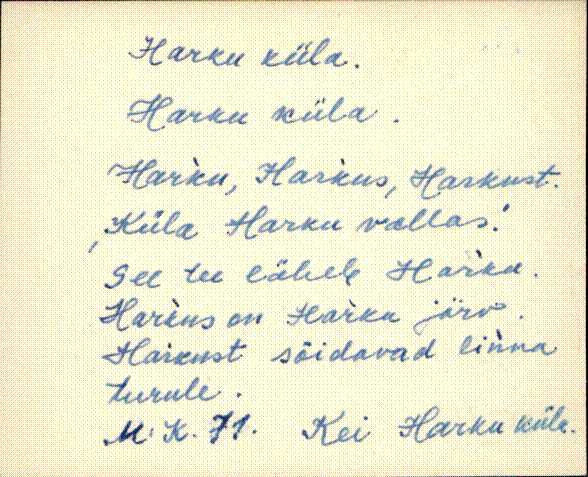 Harku küla.
Harku küla.
Harku, Harkus, Harkust.
'Küla Harku vallas.'
See tee läheb Harku.
Harkus on Harku järv.
Harkust sõidavad linna
turule.
M. K. 71. Kei Harku küla.